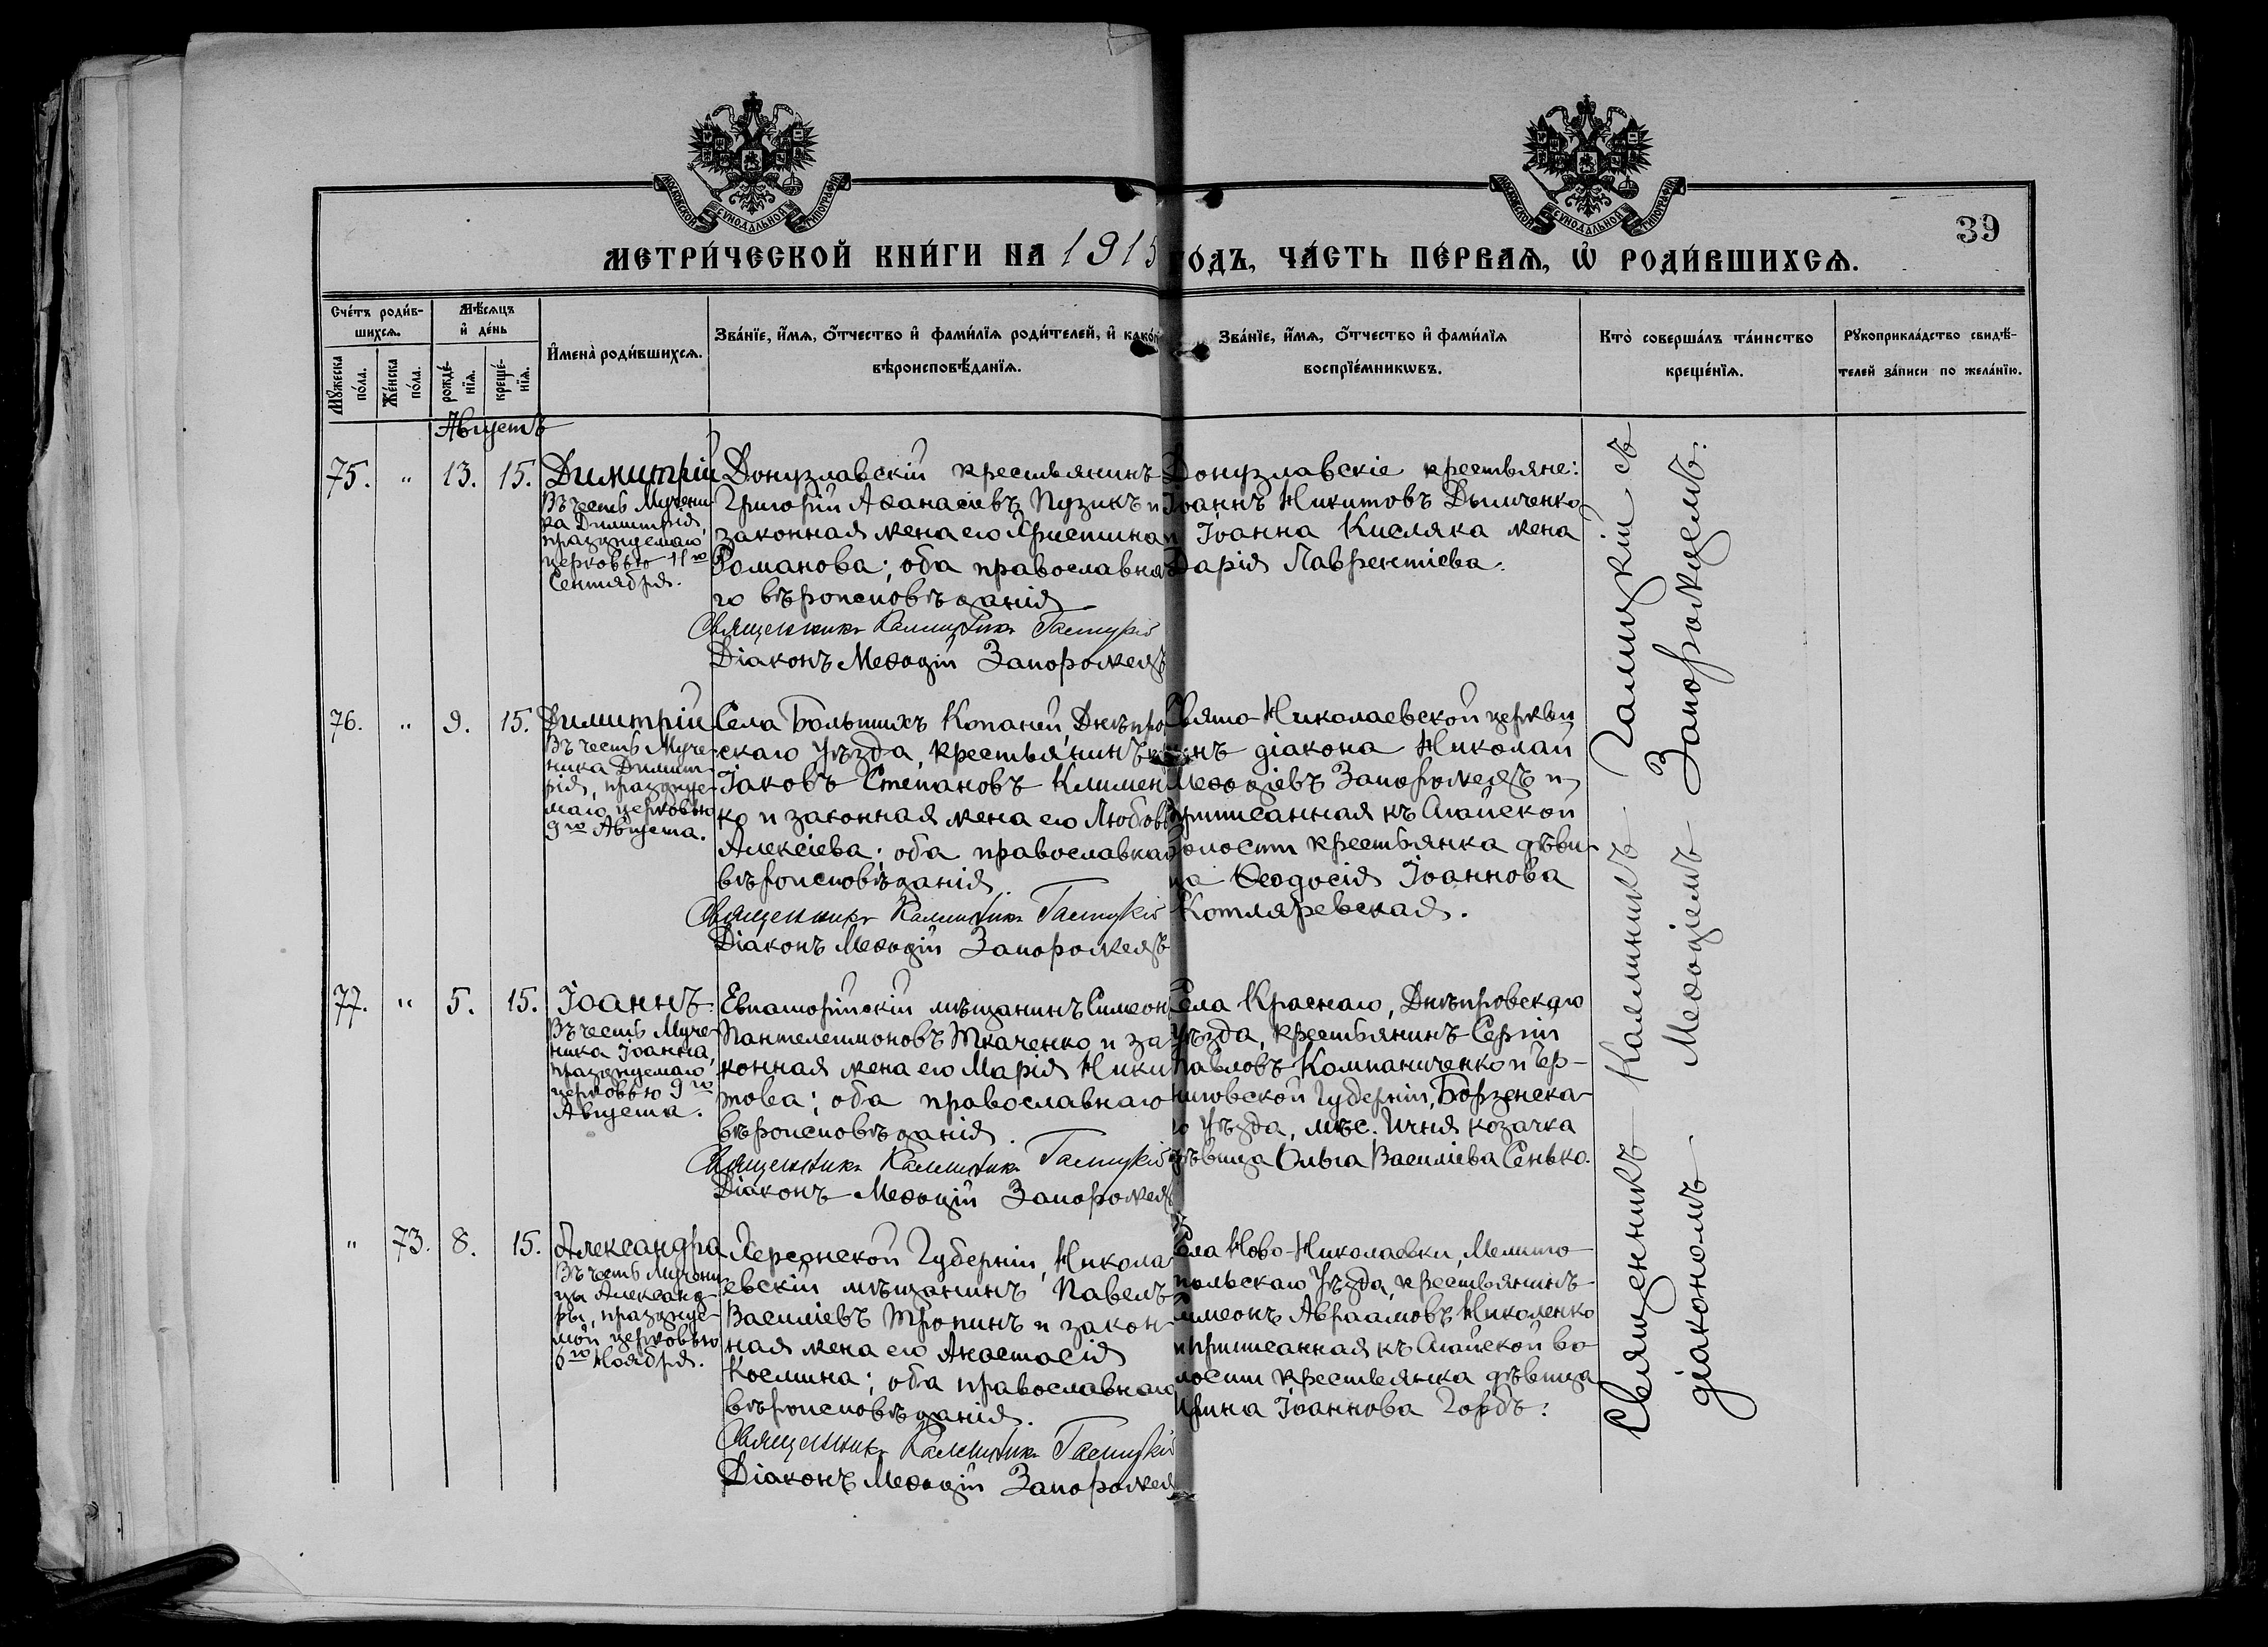 МОСКОВСКОЙ СѴНОДАЛЬНОЙ ТИПОГРАФІИ
МОСКОВСКОЙ СѴНОДАЛЬНОЙ ТИПОГРАФІИ
39
МЕТРИ́ЧЕСКОЙ КНИ́ГИ НА 1915 ГОДЪ, ЧА́СТЬ ПЕ́РВАѦ, Ѡ РОДИ́ВШИХСѦ.
Сче́тъ роди́в-
шихсѧ.
Мꙋ́жеска по́ла.
Же́нска по́ла.
Мѣ́сѧцъ
и҆ де́нь
рожде́-
нїѧ.
креще́-
нїѧ.
И҆мена̀ роди́вшихсѧ.
Зва́нїе, и҆́мѧ, ѻ҆́тчество и҆ фами́лїѧ роди́телей, и҆ како́гѡ
вѣроисповѣ́данїѧ.
Зва́нїе, и҆́мѧ, ѻ҆́тчество и҆ фами́лїѧ
воспрїе́мникѡвъ.
Кто̀ соверша́лъ та́инство
креще́нїѧ.
Рꙋкоприкла́дство свидѣ́-
телей за́писи по жела́нїю.
Августъ
75. " 13. 15. Димитрій
Въ честь Мучени-
ка Димитрія,
празднуемаго
церковью 11го
Сентября.
Донузлавскій крестьянинъ
Григорій Аѳанасіевъ Пузикъ и
законная жена его Христина
Романова; оба православна-
го вѣроисповѣданія
Священникъ Каллиникъ Галицкій
Діаконъ Меѳодій Запорожецъ
Донузлавскіе крестьяне:
Іоаннъ Никитовъ Дымченко
и Іоанна Кисляка жена
Дарія Лаврентіева.
76. " 9. 15. Димитрій
Въ честь Муче-
ника Димит-
рія, праздну-
емаго церковью
9го Августа.
Села Большихъ Копаней, Днѣпров-
скаго уѣзда, крестьянинъ
Іаковъ Степановъ Климен-
ко и законная жена его Любовь
Алексіева; оба православнаго
вѣроисповѣданія.
Священникъ Каллиникъ Галицкій
Діаконъ Меѳодій Запорожецъ
Свято-Николаевской церкви
сынъ діакона Николай
Меѳодіевъ Запорожецъ и
приписанная къ Агайской
волости крестьянка дѣви-
ца Ѳеодосія Іоаннова
Котляревская.
77. " 5. 15. Іоаннъ
Въ честь Муче-
ника Іоанна,
празднуемаго
церковью 9го
Августа.
Евпаторійскій мѣщанинъ Симеонъ
Пантелеимоновъ Ткаченко и за-
конная жена его Марія Ники-
това; оба православнаго
вѣроисповѣданія.
Священникъ Каллиникъ Галицкій
Діаконъ Меѳодій Запорожецъ
Села Краснаго, Днѣпровскаго
уѣзда, крестьянинъ Сергій
Павловъ Компаниченко и Чер-
ниговской Губерніи, Борзенска-
го уѣзда, мѣс. Ичня козачка
дѣвица Ольга Василіева Сенько.
" 73. 8. 15. Александра
Въ честь Мучени-
цы Александ-
ры, праздуе-
мой церковью
6го Ноября.
Херсонской Губерніи, Никола-
евскій мѣщанинъ Павелъ
Василіевъ Тропинъ и закон-
ная жена его Анастасія
Космина; оба православнаго
вѣроисповѣданія.
Священникъ Каллиникъ Галицкій
Діаконъ Меѳодій Запорожецъ
Села Ново-Николаевки, Мелито-
польскаго уѣзда, крестьянинъ
Симеонъ Авраамовъ Николенко
и приписанная къ Агайской во-
лости крестьянка дѣвица
Ирина Іоаннова Горбъ.
Священникъ Каллиникъ Галицкій съ
діакономъ Меѳодіемъ Запорожцемъ.